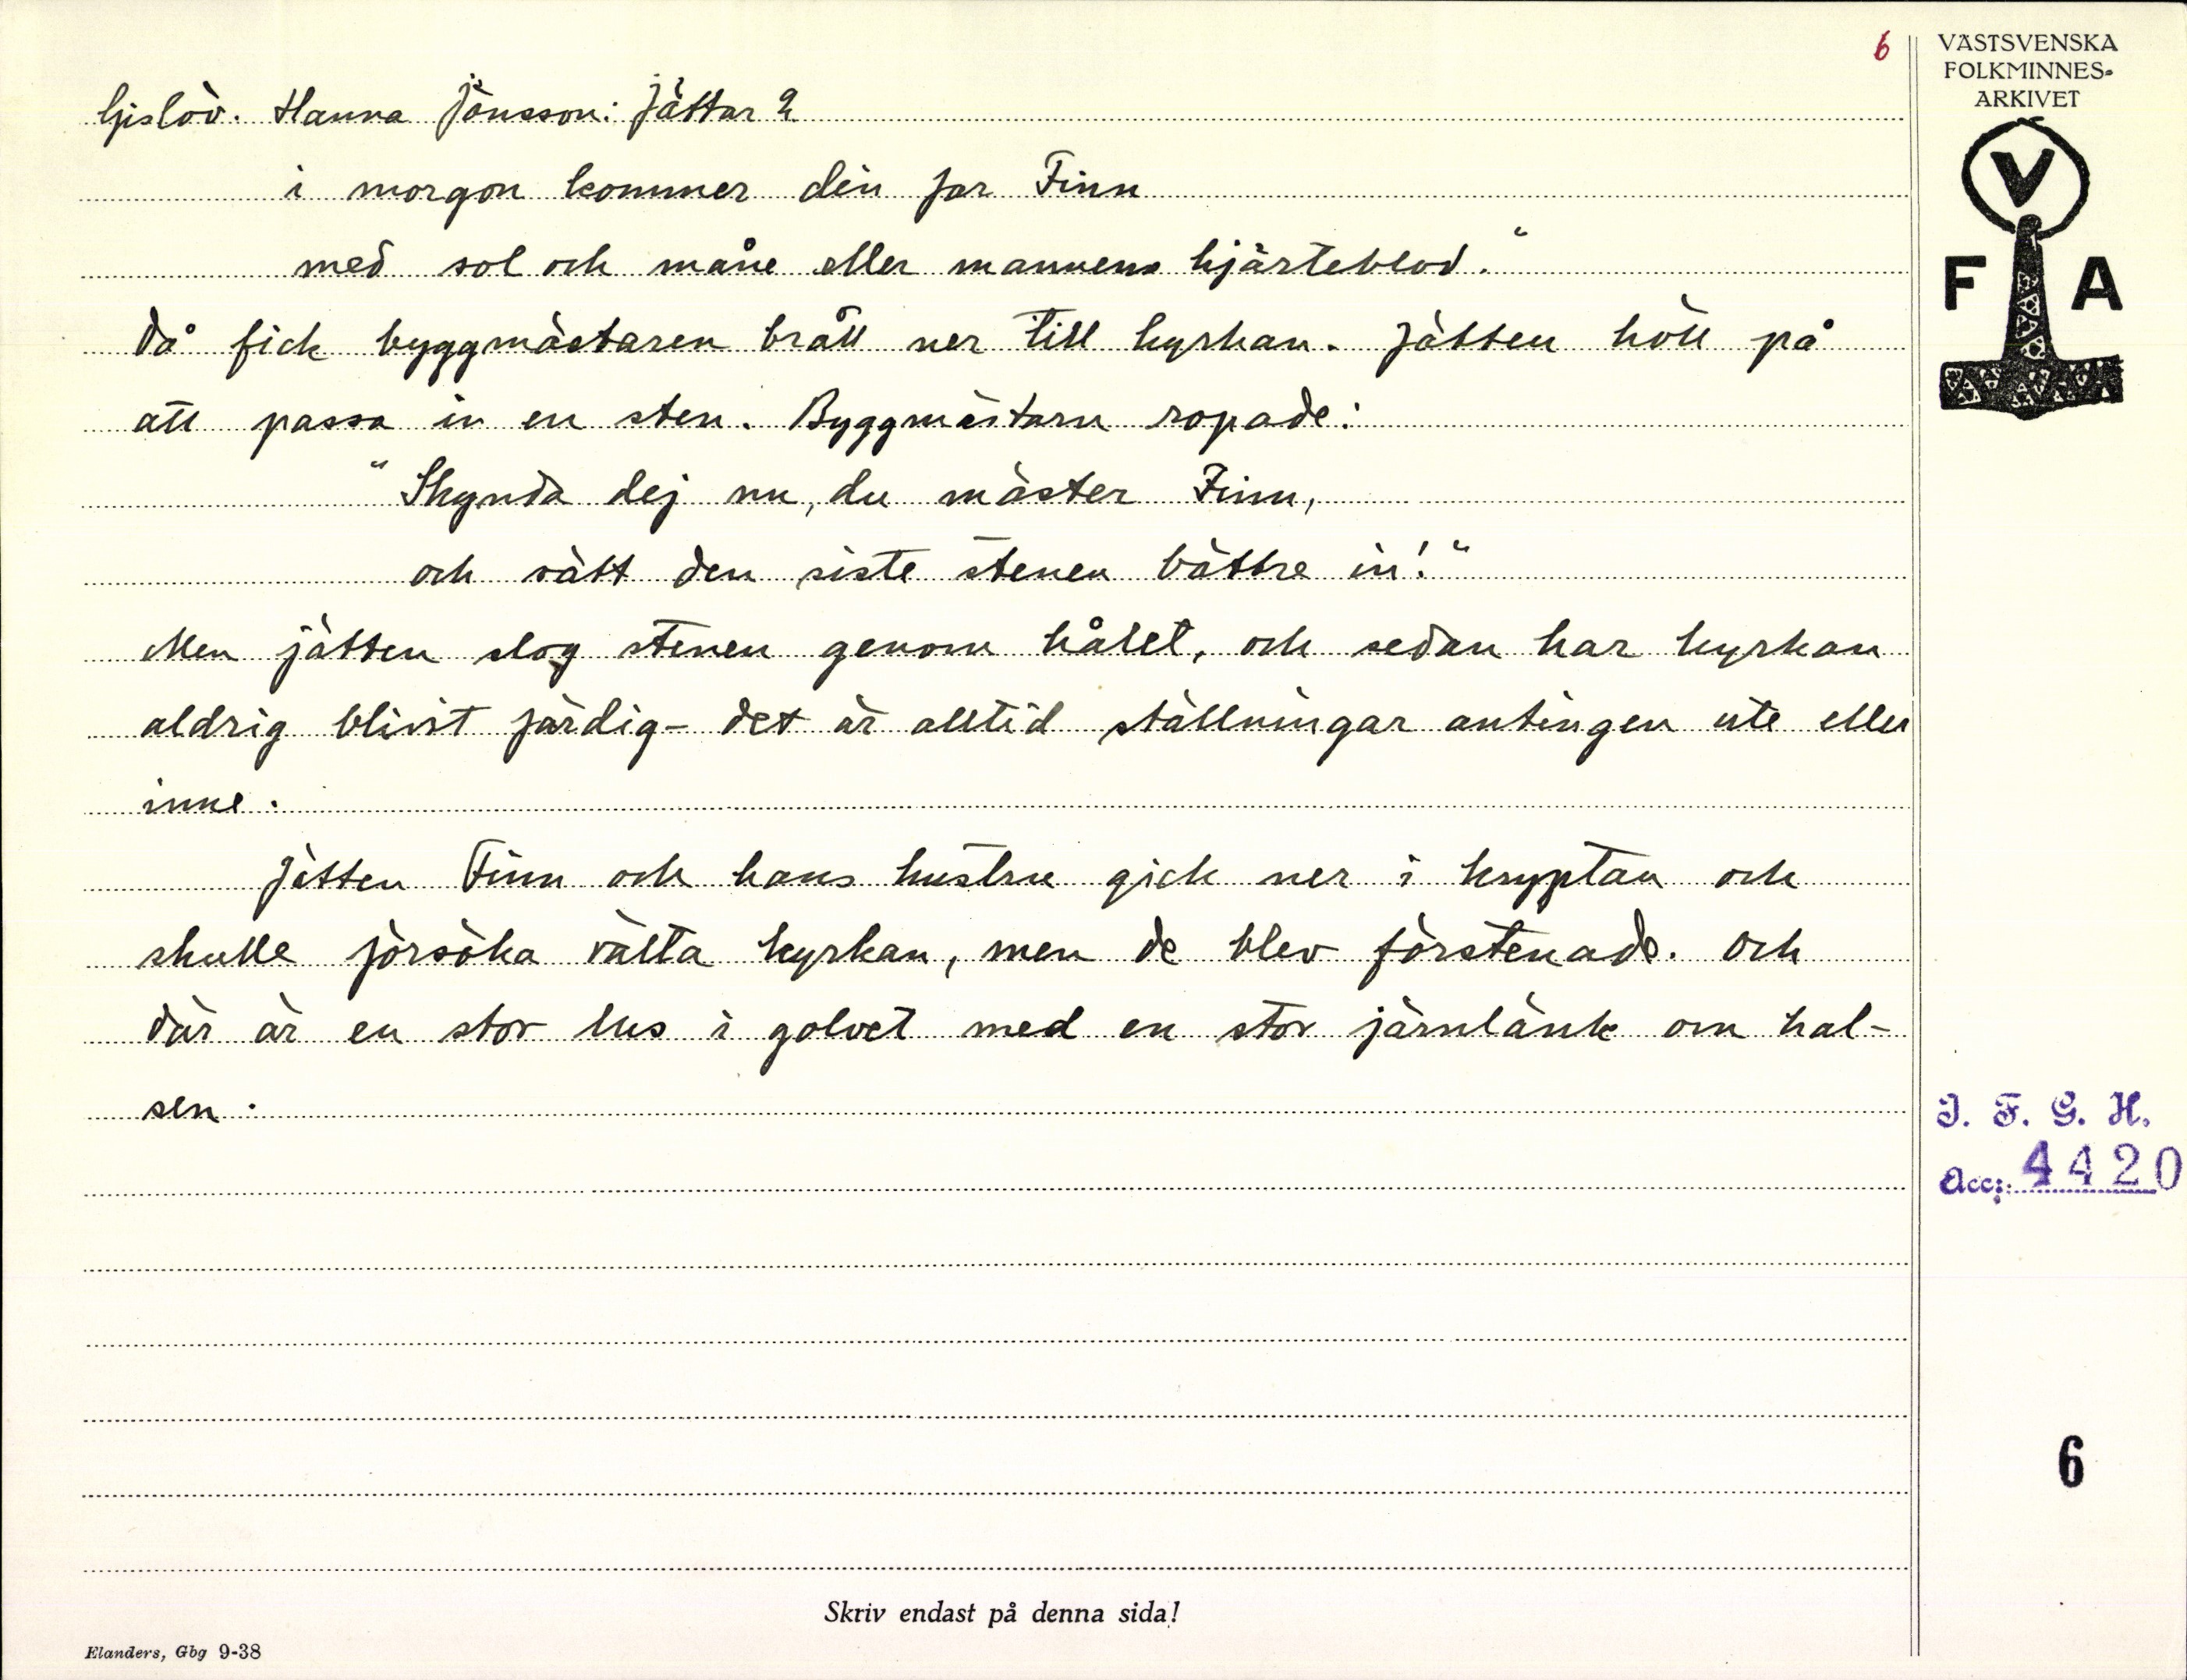 6
VÄSTSVENSKA
FOLKMINNES-
ARKIVET
V
F A
Gislöv. Hanna Jönsson: Jättar 2
i morgon kommer din far Finn
med sol och måne eller mannens hjärteblod."
Då fick byggmästaren brått ner till kyrkan. Jätten höll på
att passa in en sten. Byggmästarn ropade:
"Skynda dej nu, du mäster Finn,
och sätt den siste stenen bättre in!"
Men jätten slog stenen genom hålet, och sedan har kyrkan
aldrig blivit färdig - det är alltid ställningar antingen ute eller
inne.
Jätten Finn och hans hustru gick ner i kryptan och
skulle försöka välta kyrkan, men de blev förstenade. Och
där är en stor lus i golvet med en stor järnlänk om hal-
sen.
I. F. G. H.
Acc: 4420
6
Skriv endast på denna sida!
Elanders, Gbg 9-38